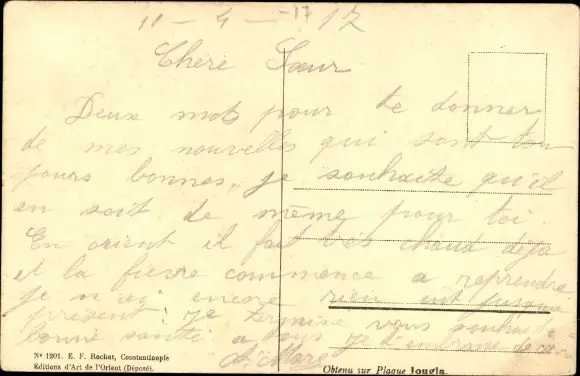 11 - 4 - 17
Chere Sœur
Deux mots pour te donner
de mes nouvelles qui sont tou
jours bonnes, je souhaite qu'il
en soit de même pour toi.
En orient il fait très chaud déjà
et la fievre commence a reprendre
je n'ai encore rien eut jusque
présent; je termine vous souhait
bonne santé a tous je t'embrasse de
Nº 1201. E. F. Rochat, Constantinople
Editions d'Art de l'Orient (Déposé).
Obtenu sur Plaque Jougla.